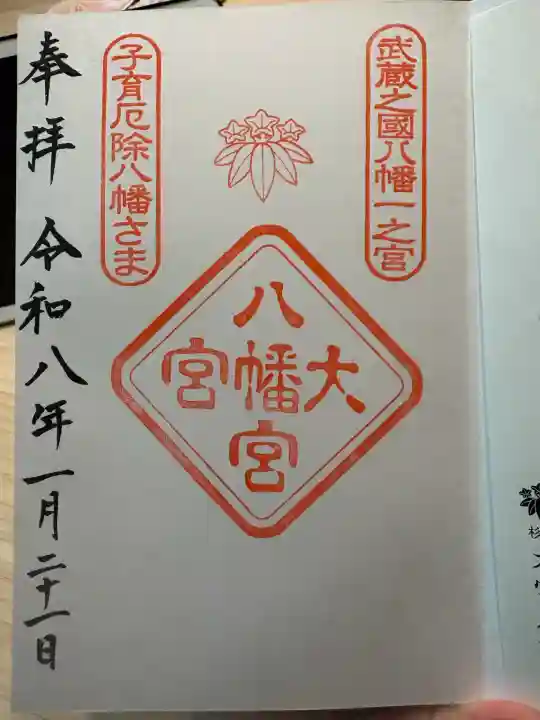 武蔵之國八幡一之宮
大宮
八幡宮
子育厄除八幡さま
奉拝 令和八年一月二十一日
杉